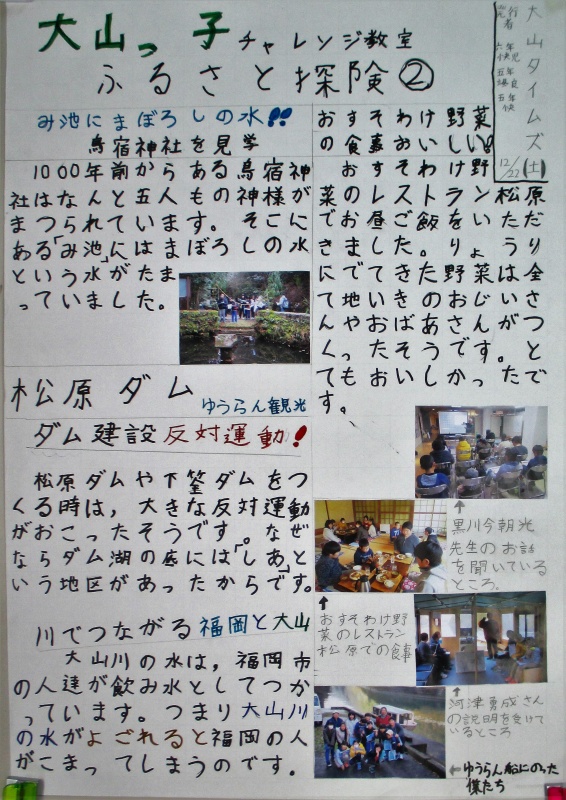 大山っ子チャレンジ教室
ふるさと探険②
大山タイムズ
12/22(土)
発行者
六年
五年
五年
み池にまぼろしの水!!
鳥宿神社を見学
1000年前からある鳥宿神
社はなんと五人もの神様が
まつられています。そこに
ある「み池」にはまぼろしの水
という水がたま
っていました。
おすそわけ野菜
の食事おいしい!!
おすそわけ野
菜のレストラン松原
でお昼ご飯をいただ
きました。りょうり
にでてきた野菜は全
て地いきのおじいさ
んやおばあさんがつ
くったそうです。と
てもおいしかったで
す。
松原ダム
ゆうらん観光
ダム建設反対運動!
松原ダムや下筌ダムをつ
くる時は,大きな反対運動
がおこったそうです。なぜ
ならダム湖の底には「しあ」と
いう地区があったからです。
川でつながる福岡と大山
大山川の水は,福岡市
の人達が飲み水としてつか
っています。つまり大山川
の水がよごれると福岡の人
がこまってしまうのです。
↑
黒川今朝光
先生のお話
を聞いている
ところ。
↑
おすそわけ野
菜のレストラン
松原での食事
↑
河津勇成さん
の説明を受けて
いるところ
←ゆうらん船にのった
僕たち